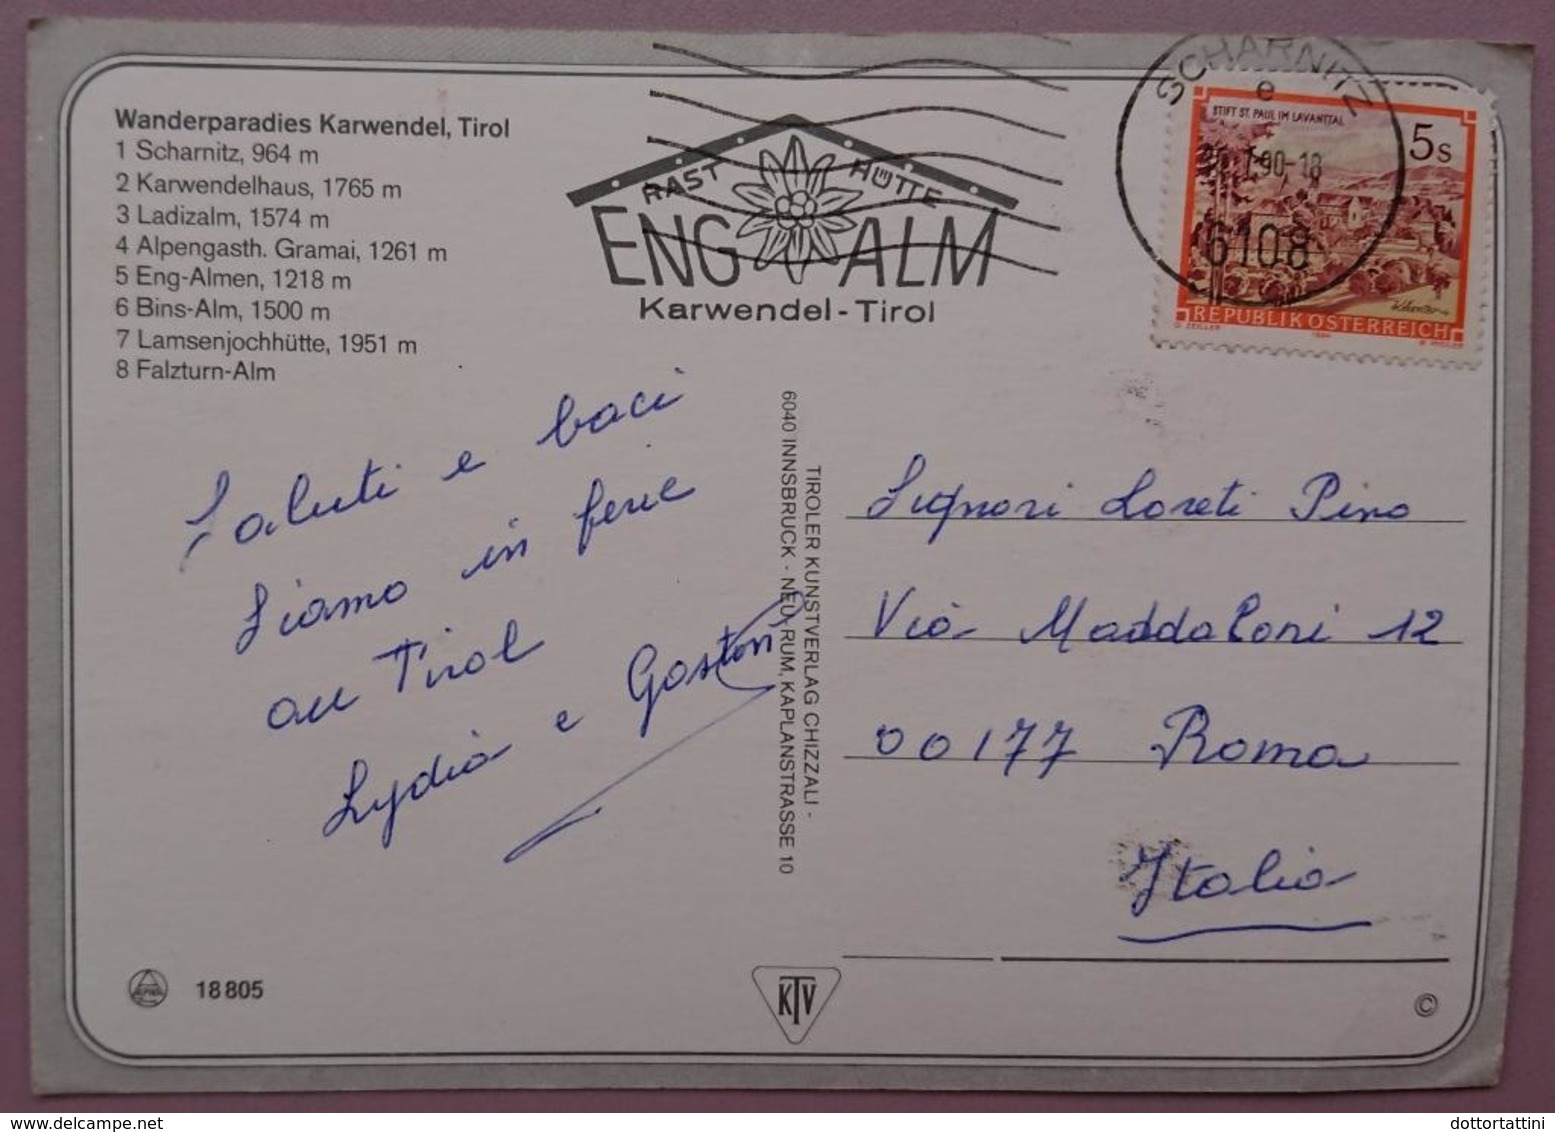 Wanderparadies Karwendel, Tirol
1 Scharnitz, 964 m
2 Karwendelhaus, 1765 m
3 Ladizalm, 1574 m
4 Alpengasth. Gramai, 1261 m
5 Eng-Almen, 1218 m
6 Bins-Alm, 1500 m
7 Lamsenjochhütte, 1951 m
8 Falzturn-Alm
RAST HÜTTE
ENG ALM
Karwendel-Tirol
SCHARNITZ
e
7.90-18
6108
STIFT ST. PAUL IM LAVANTTAL
5s
REPUBLIK ÖSTERREICH
Saluti e baci
Siamo in ferie
au Tirol
Lydia e Gaston
TIROLER KUNSTVERLAG CHIZZALI -
6040 INNSBRUCK - NEU-RUM, KAPLANSTRASSE 10
Signori Loreti Pino
Via Maddaloni 12
00177 Roma
Italia
18805
KTV
©
dottortattini